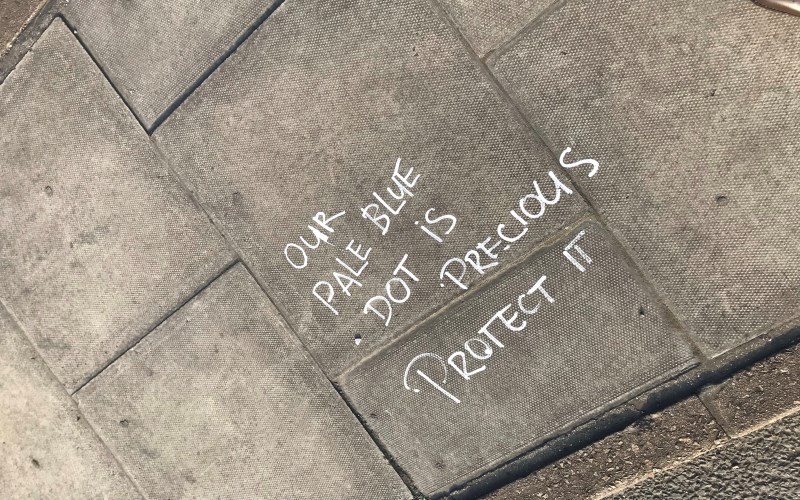 OUR
PALE BLUE
DOT IS
PRECIOUS
PROTECT IT